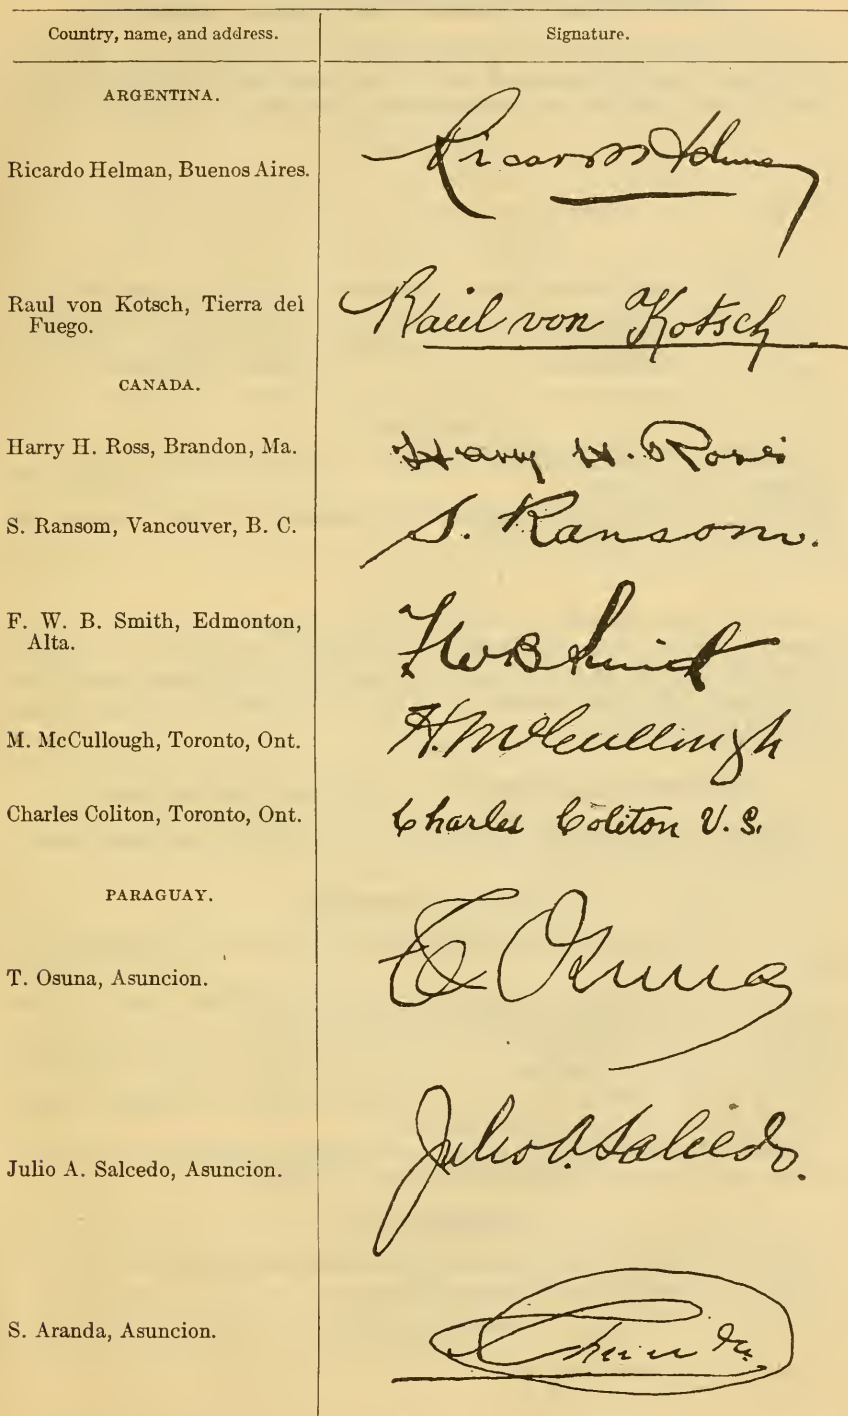 Country, name, and address.
Signature.
ARGENTINA.
Ricardo Helman, Buenos Aires.
Ricardo Helman
Raul von Kotsch, Tierra del
Fuego.
Raúl von Kotsch
CANADA.
Harry H. Ross, Brandon, Ma.
Harry H. Ross
S. Ransom, Vancouver, B. C.
S. Ransom.
F. W. B. Smith, Edmonton,
Alta.
FWB Smith
M. McCullough, Toronto, Ont.
H. McCullough
Charles Coliton, Toronto, Ont.
Charles Coliton V. S.
PARAGUAY.
T. Osuna, Asuncion.
T Osuna
Julio A. Salcedo, Asuncion.
Julio A. Salcedo.
S. Aranda, Asuncion.